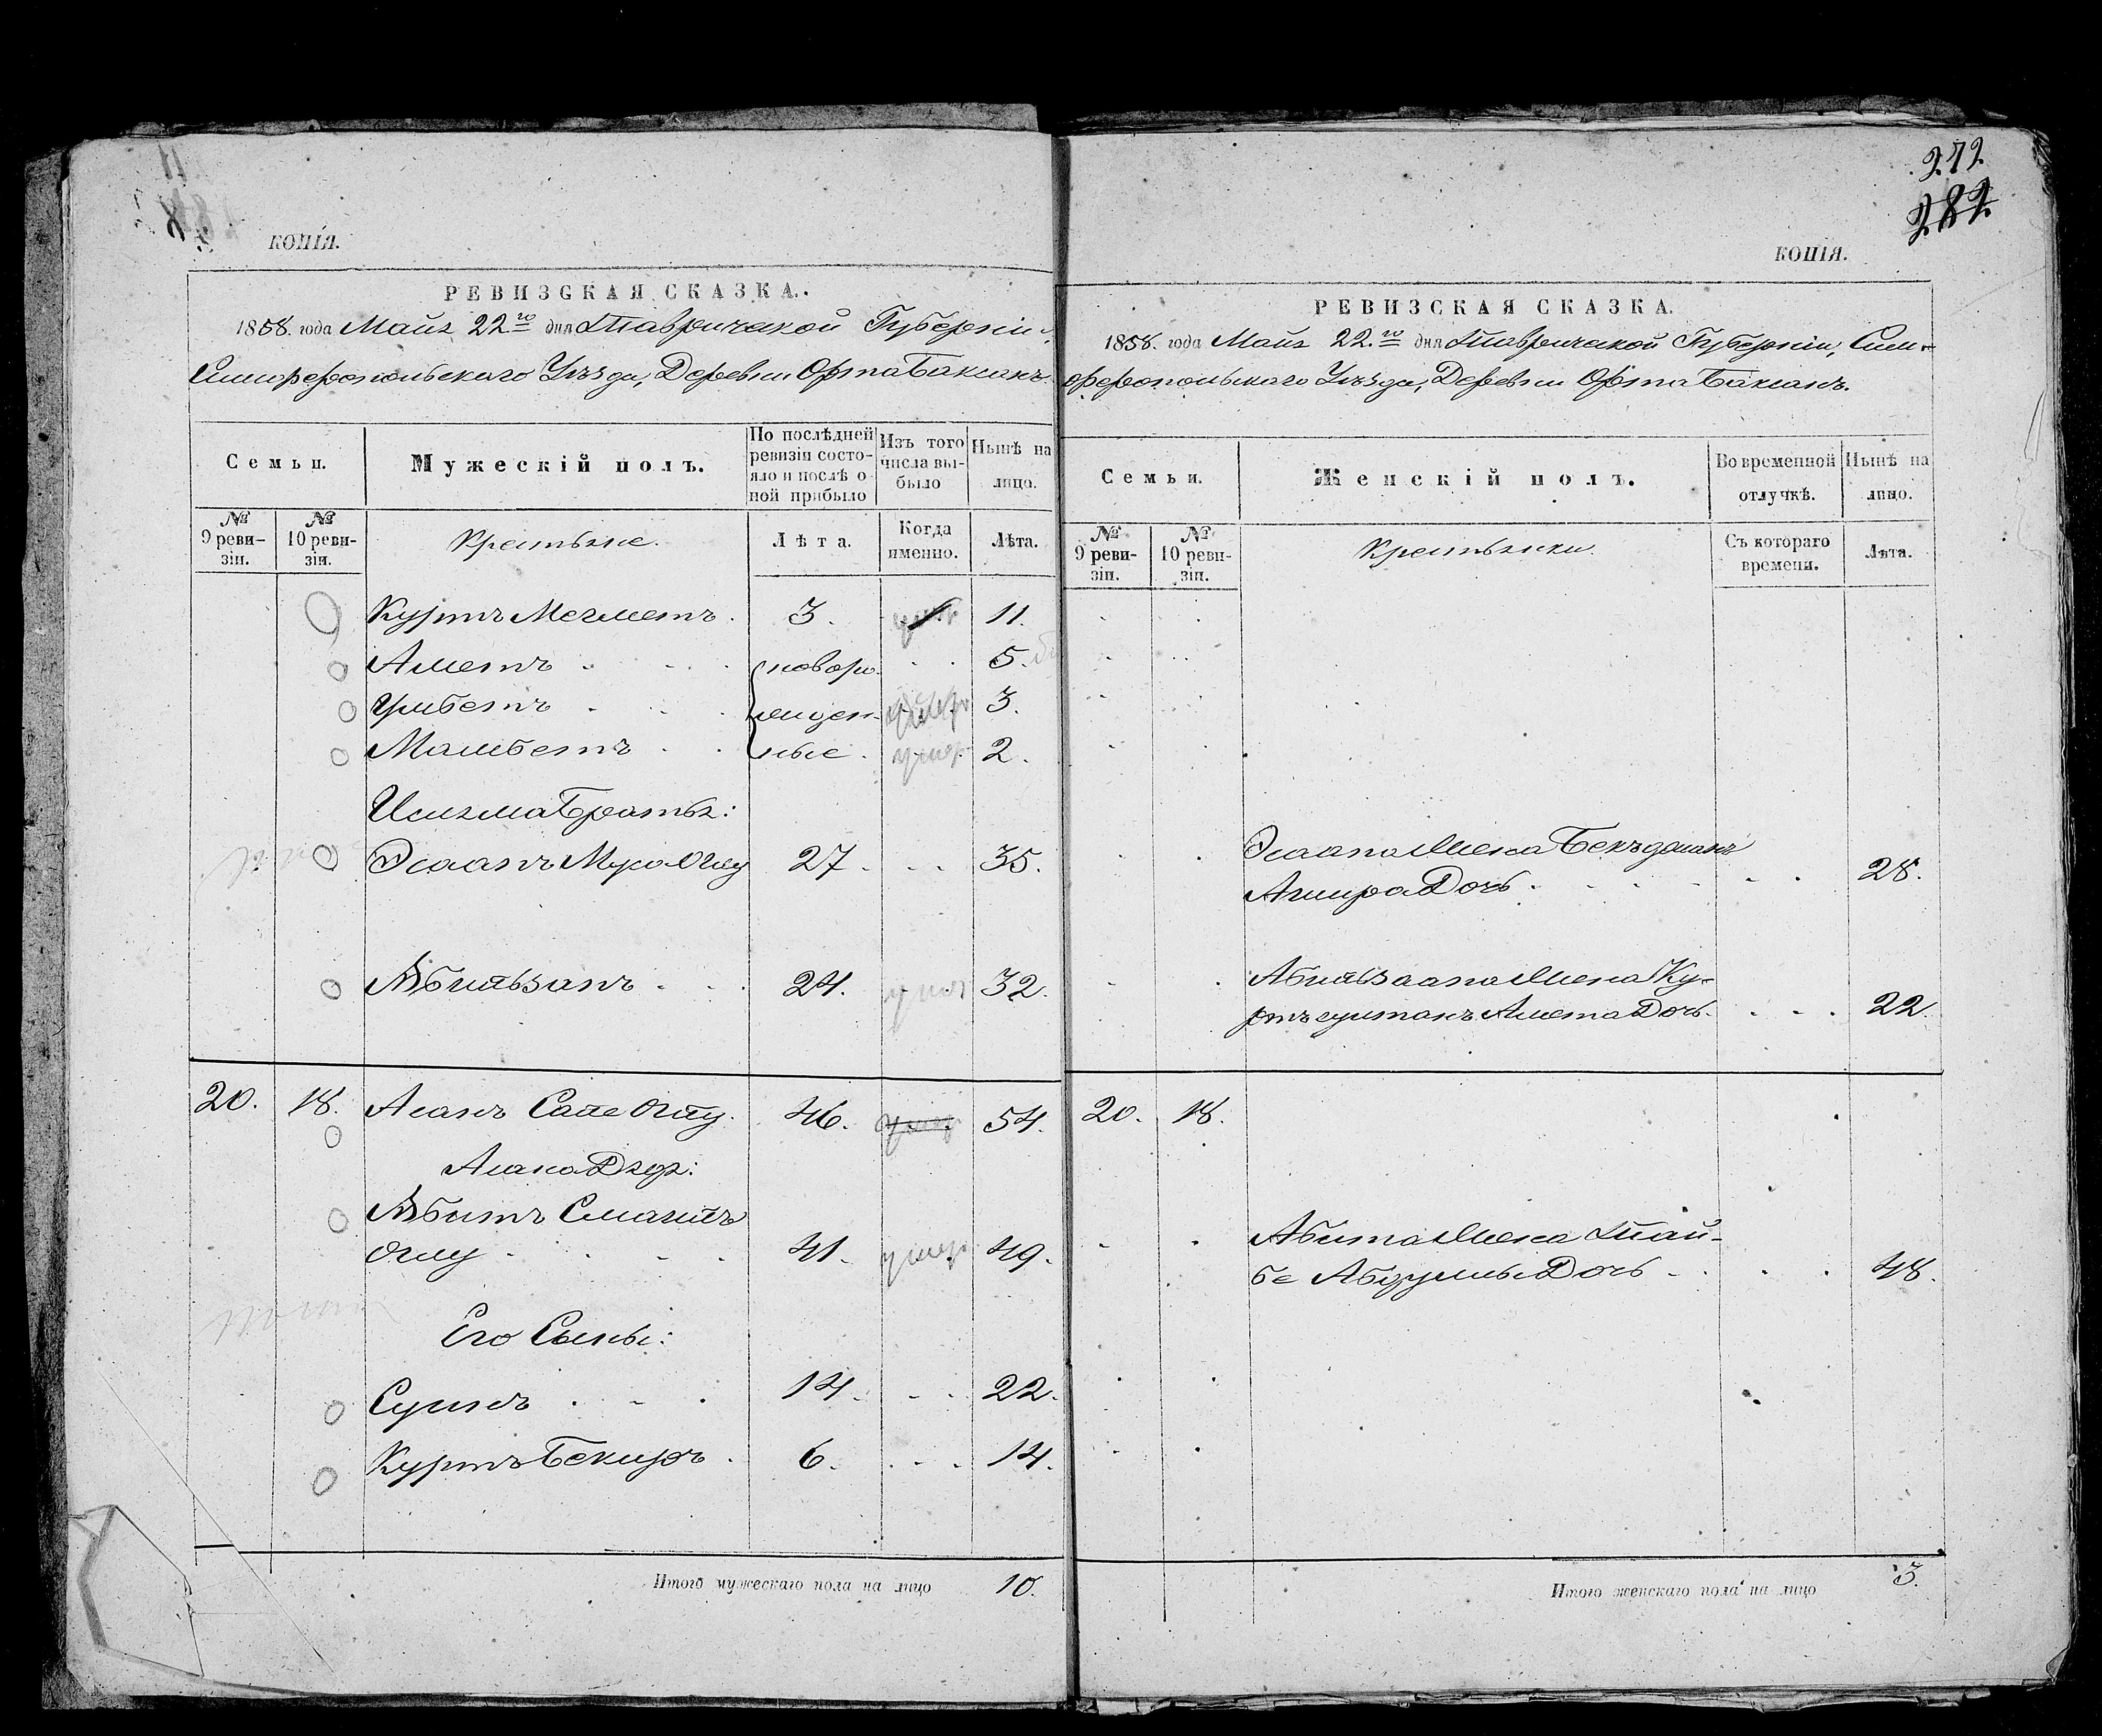 КОПІЯ.
РЕВИЗСКАЯ СКАЗКА.
1858. года Маія 22го дня Таврической Губерніи,
Симферопольскаго Уѣзда, Деревни Орта Баксанъ.
Семьи.
Мужескій полъ.
По послѣдней ревизіи состояло и послѣ оной прибыло
Изъ того числа выбыло
Нынѣ на лицо.
№ 9 ревизіи.
№ 10 ревизіи.
Крестьяне.
Лѣта.
Когда именно.
Лѣта.
Куртъ Мегметъ. 3. 11.
Аметъ новоро- 5.
Умбетъ жден- умеръ 3.
Мамбетъ ные. умер 2.
Исляма Братья:
Эсаанъ Муса Оглу 27. 35.
Абильзаанъ 24. умер 32.
20. 18. Асанъ Сале Оглу. 46. умер 54.
Асана Дядя:
Абитъ Смаилъ
Оглу 41. умер 49.
Его Сыны:
Сулинъ 14. 22.
Куртъ Бекиръ. 6. 14.
Итого мужескаго пола на лицо 10.
272.
282.
КОПІЯ.
РЕВИЗСКАЯ СКАЗКА.
1858. года Маія 22.го дня Таврической Губерніи, Сим-
феропольскаго Уѣзда, Деревни Орта Баксанъ.
Семьи.
Женскій полъ.
Во временной отлучкѣ.
Нынѣ на лицо.
№ 9 ревизіи.
№ 10 ревизіи.
Крестьянки
Съ котораго времени.
Лѣта.
Эсаана Жена
Дочь 28.
Абильзаана Жена Ку-
ртъсултанъ Амета Дочь. 22.
20. 18.
Абита Жена Тай-
бе Дочь 48.
Итого женскаго пола на лицо 3.